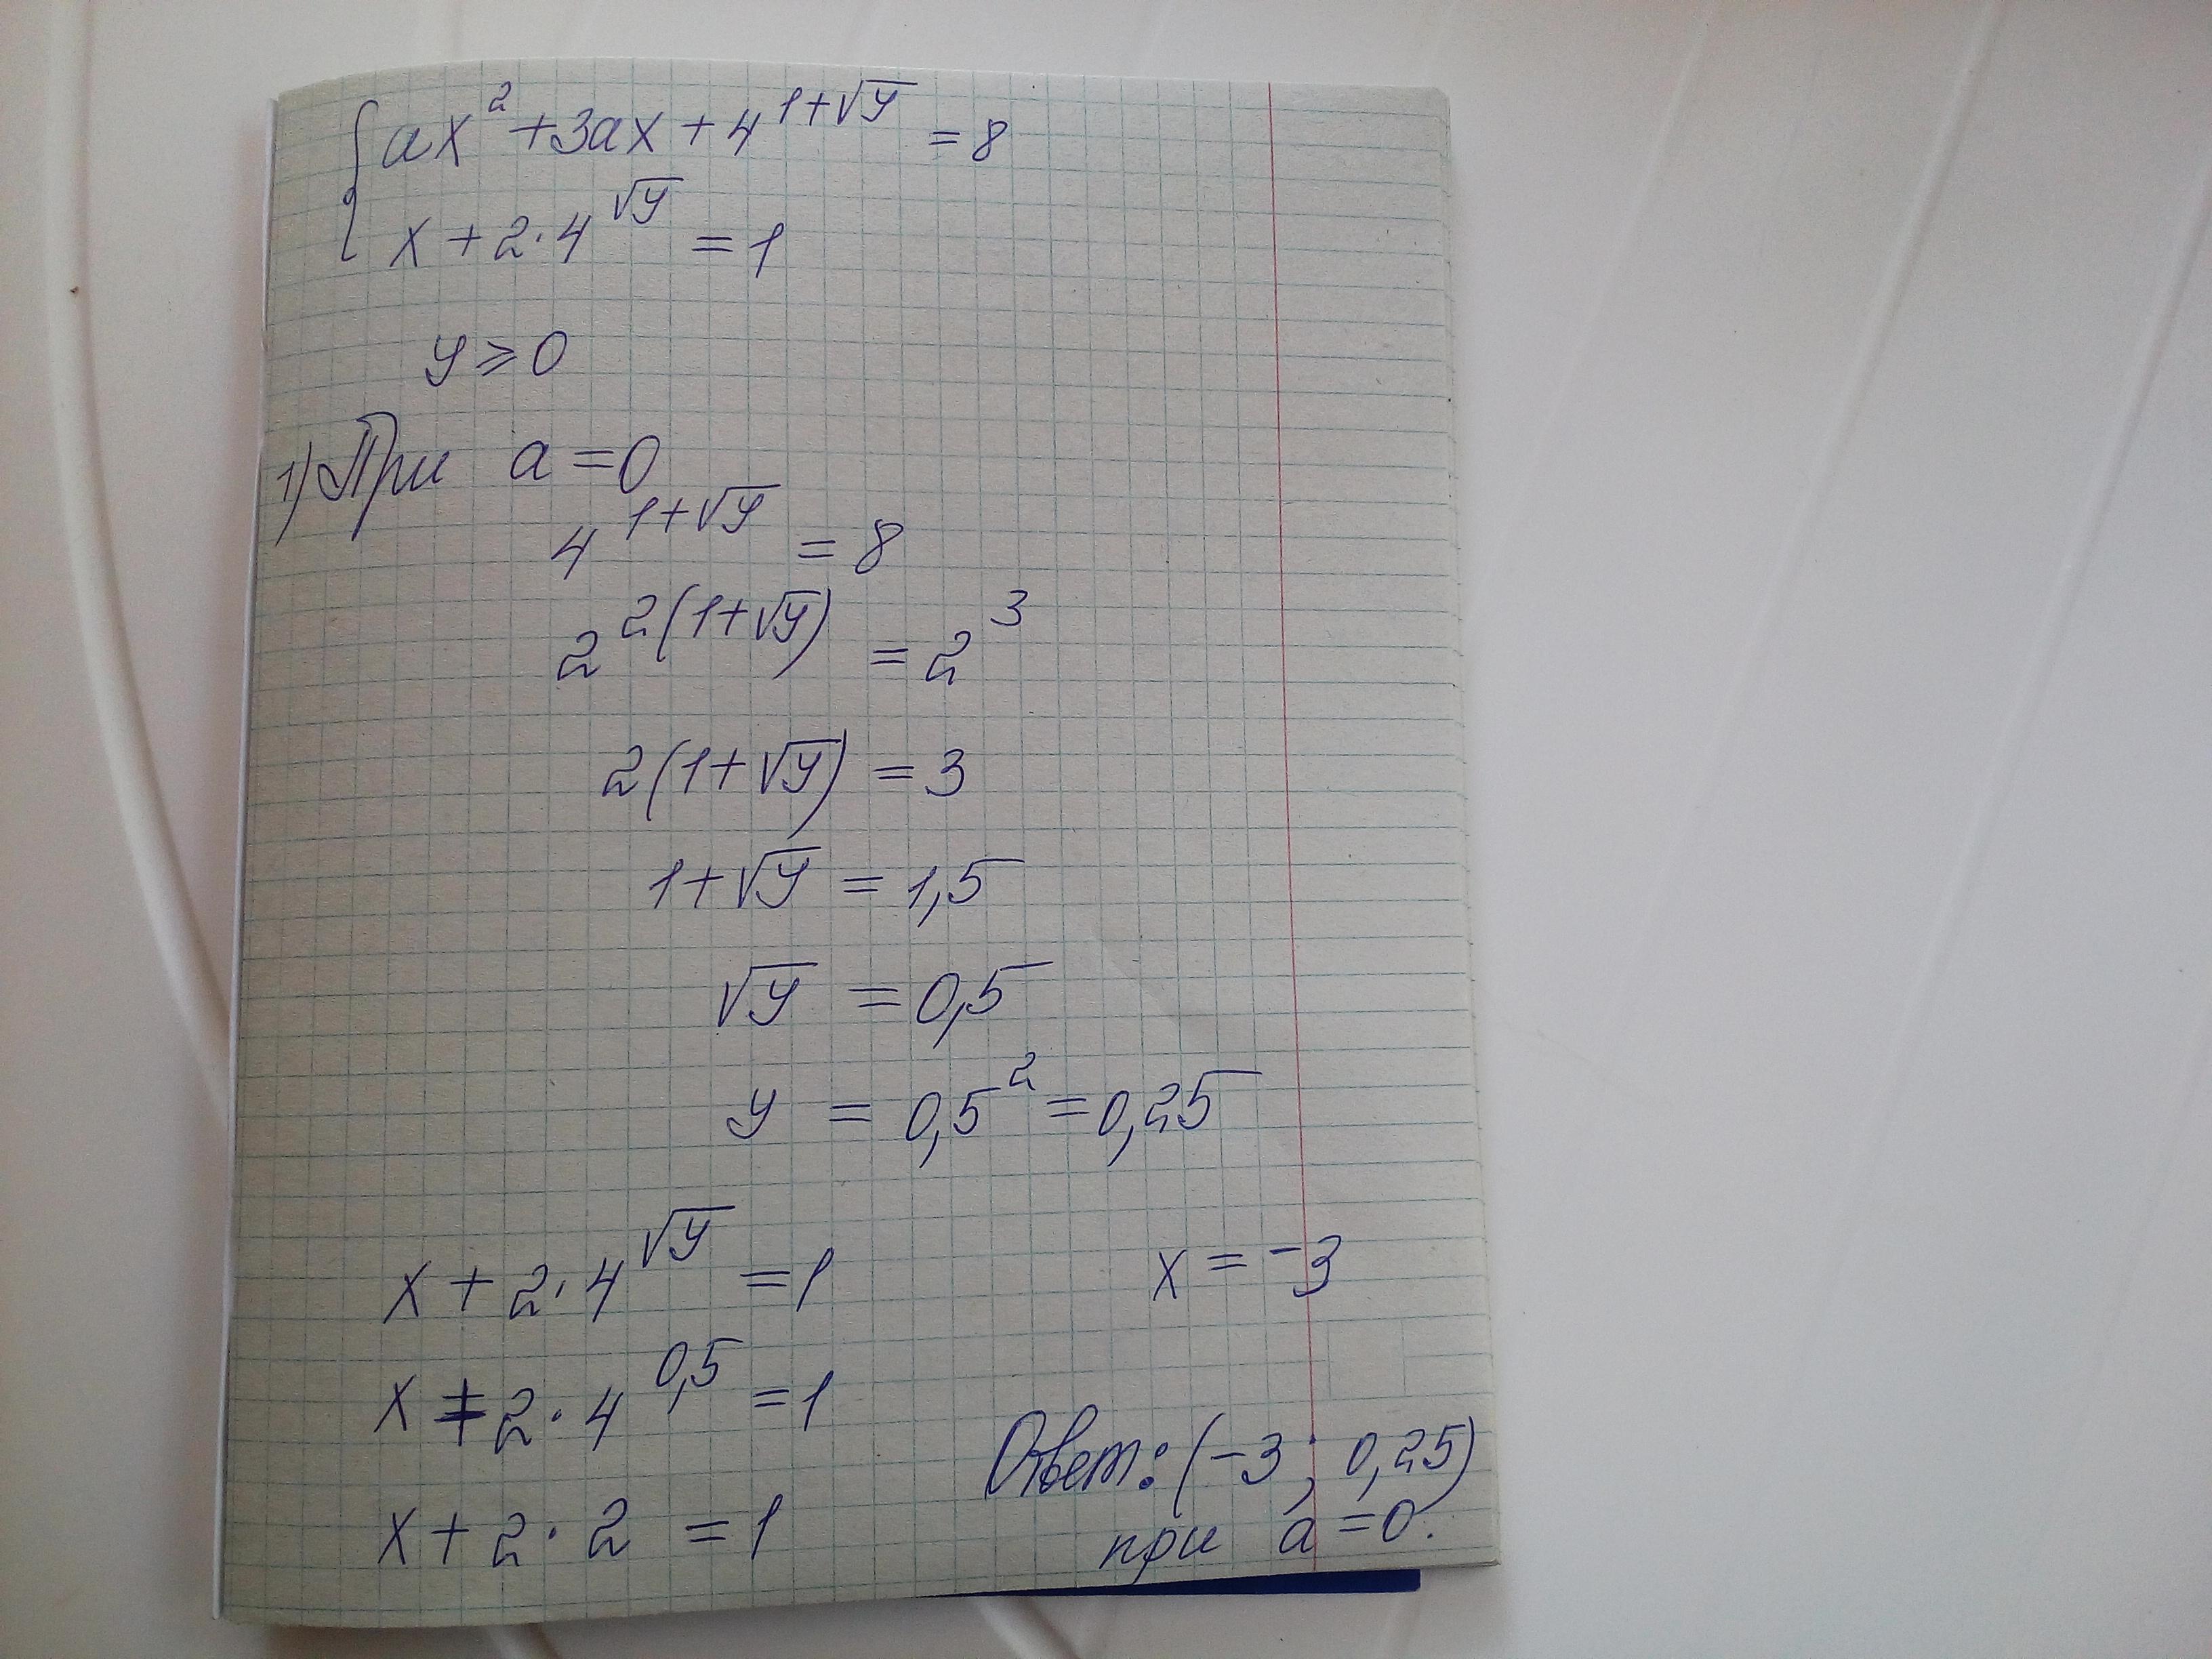 {ax² + 3ax + 4^(1+√y) = 8
x + 2·4^√y = 1
y ⩾ 0
1) При a = 0
4^(1+√y) = 8
2^(2(1+√y)) = 2³
2(1+√y) = 3
1+√y = 1,5
√y = 0,5
y = 0,5² = 0,25
x + 2·4^√y = 1
x + 2·4^0,5 = 1
x + 2·2 = 1
x = -3
Ответ: (-3; 0,25)
при a = 0.